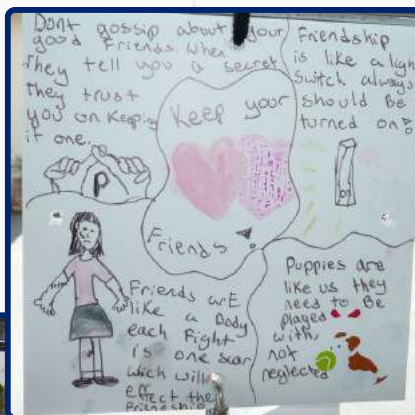 Dont gossip about your
good friends. When
They tell you a secret
they trust
you on Keeping
it one.
P
Keep your
Friends
Friendship
is like a ligh
Switch always
should be
turned on
on
Friends arE
like a Body
each Fight
is one scar
which will
effect the
Friendship
Puppies are
like us they
need to Be
played
with,
not
neglected